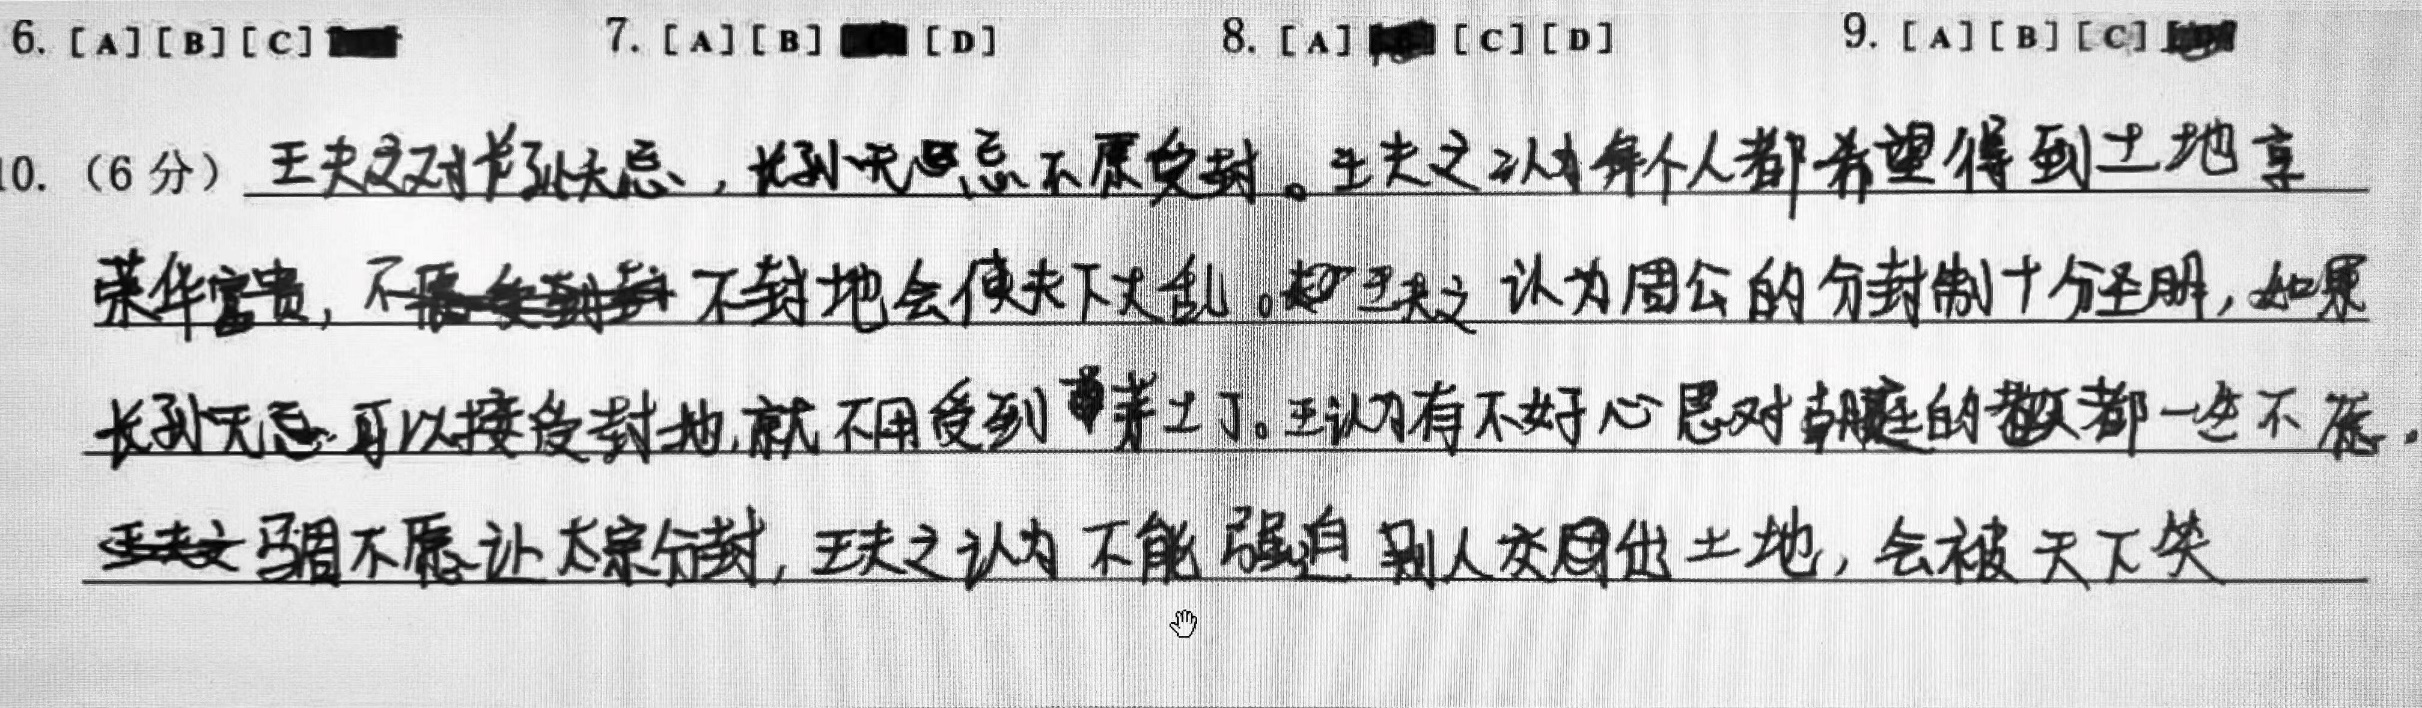 6. [A] [B] [C] 7. [A] [B] [D] 8. [A] [C] [D] 9. [A] [B] [C]
10. (6分) 王夫之对长孙无忌,长孙无忌不愿受封。王夫之认为每个人都希望得到土地享
荣华富贵,不封地会使天下大乱。王夫之认为周公的分封制十分圣明,如果
长孙无忌可以接受封地,就不用受到茅土了。王认为有不好心思对朝庭的都一生不愿.
马周不愿让太宗分封,王夫之认为不能强迫别人交出土地,会被天下笑